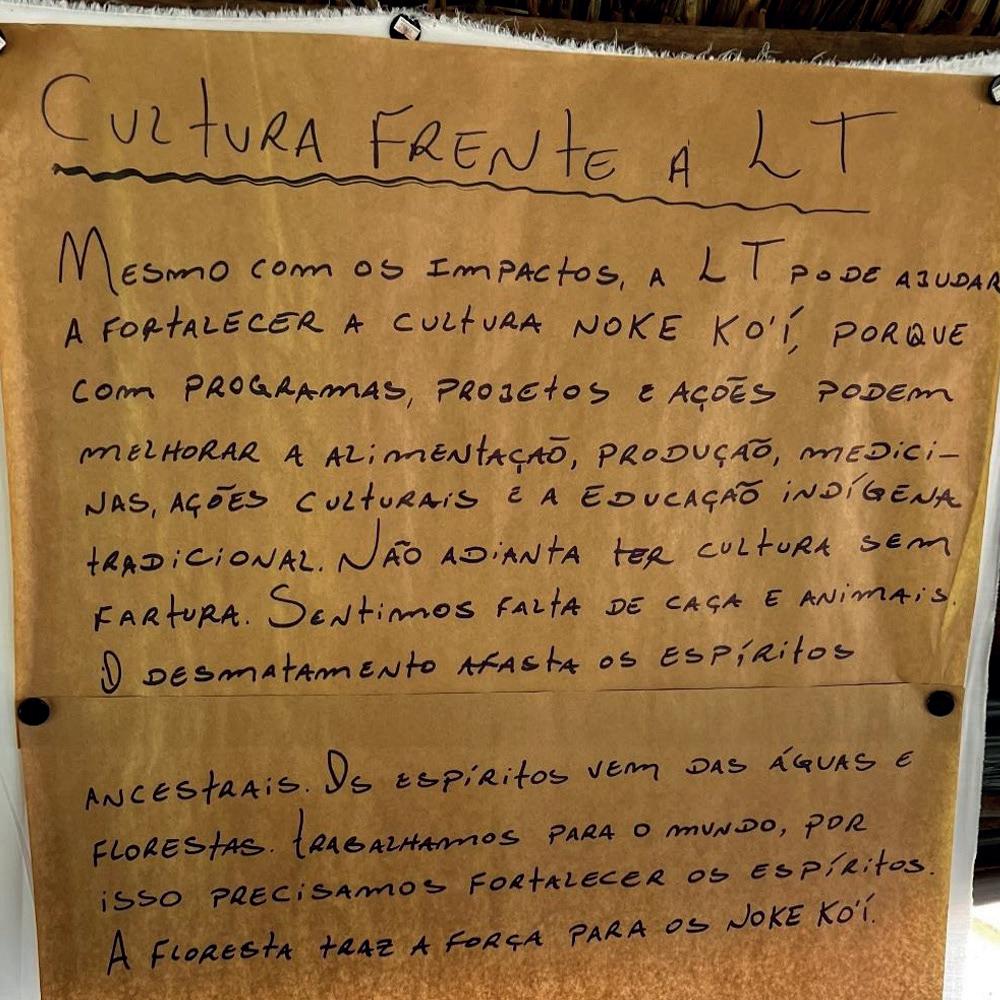 CULTURA FRENTE A LT
MESMO COM OS IMPACTOS, A LT PODE AJUDAR
A FORTALECER A CULTURA NOKE KO'Í, PORQUE
COM PROGRAMAS, PROJETOS E AÇÕES PODEM
MELHORAR A ALIMENTAÇÃO, PRODUÇÃO, MEDICI-
NAS, AÇÕES CULTURAIS E A EDUCAÇÃO INDÍGENA
TRADICIONAL. NÃO ADIANTA TER CULTURA SEM
FARTURA. SENTIMOS FALTA DE CAÇA E ANIMAIS.
O DESMATAMENTO AFASTA OS ESPÍRITOS
ANCESTRAIS. OS ESPÍRITOS VEM DAS ÁGUAS E
FLORESTAS. TRABALHAMOS PARA O MUNDO, POR
ISSO PRECISAMOS FORTALECER OS ESPÍRITOS.
A FLORESTA TRAZ A FORÇA PARA OS NOKE KO'Í.